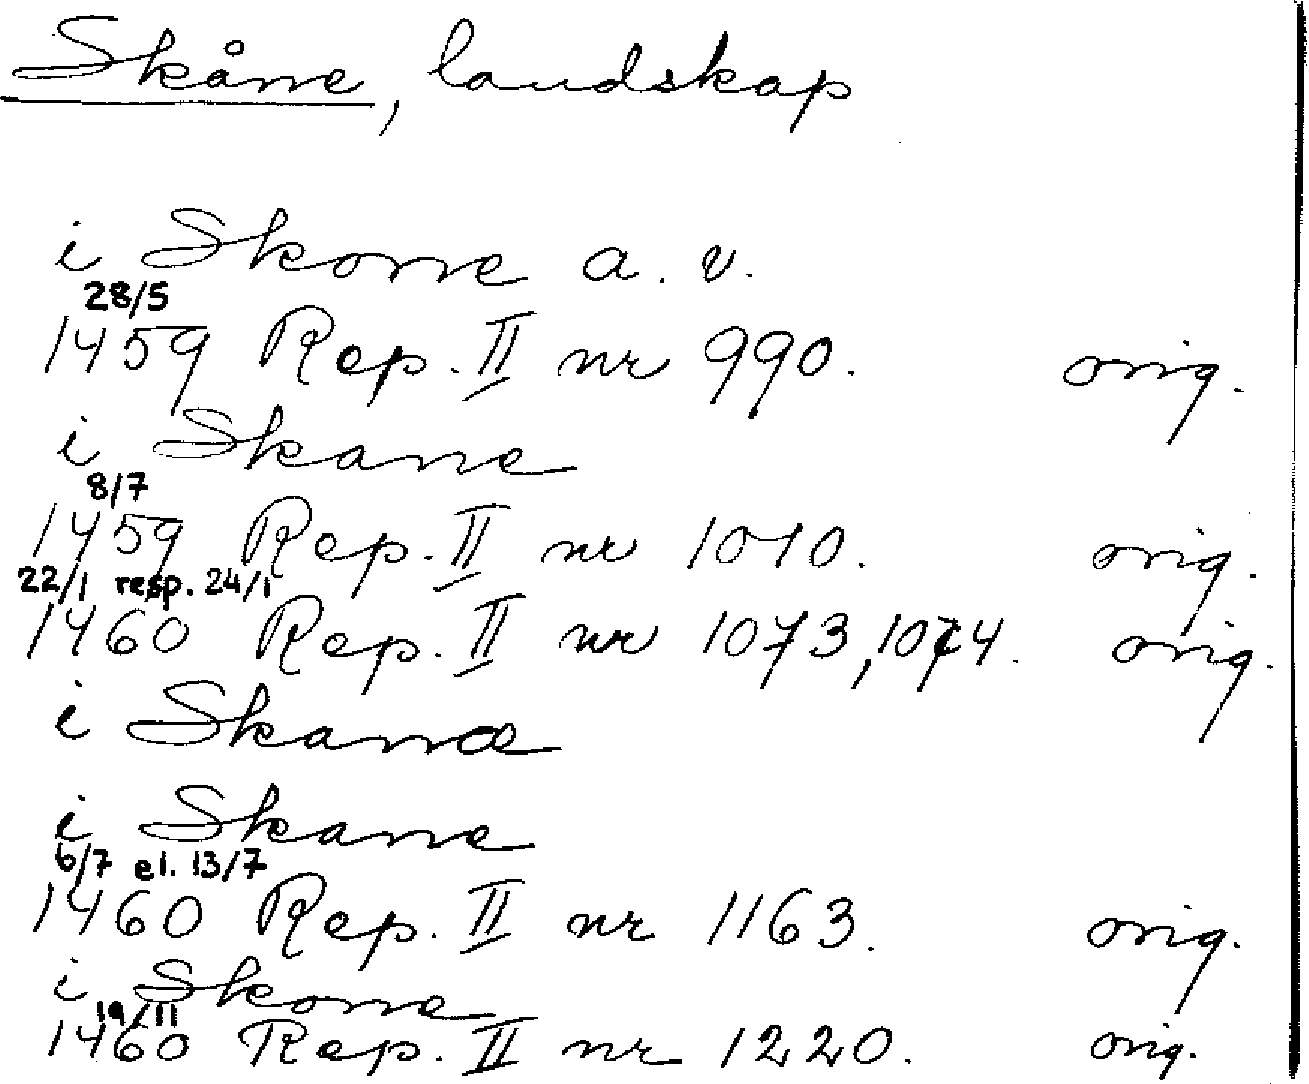 Skåne, landskap
i Skone a. v.
28/5
1459 Rep. II nr 990. orig.
i Skane
8/7
1459 Rep. II nr 1010. orig.
22/1 resp. 24/1
1460 Rep. II nr 1073, 1074. orig.
i Skanæ
i Skane
6/7 el. 13/7
1460 Rep. II nr 1163. orig.
i Skone
19/11
1460 Rep. II nr 1220. orig.